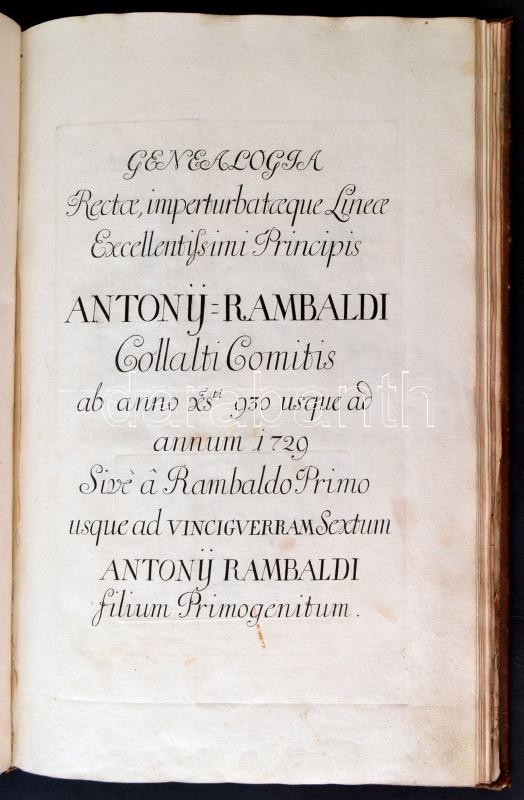 GENEALOGIA
Rectæ, imperturbatæque Lineæ
Excellentiſsimi Principis
ANTONIJ=RAMBALDI
Collalti Comitis
ab anno Xs̃ti 930 usque ad
annum 1729
Sivè â Rambaldo Primo
usque ad VINCIGVERRAM Sextum
ANTONIJ RAMBALDI
filium Primogenitum.
darabanth